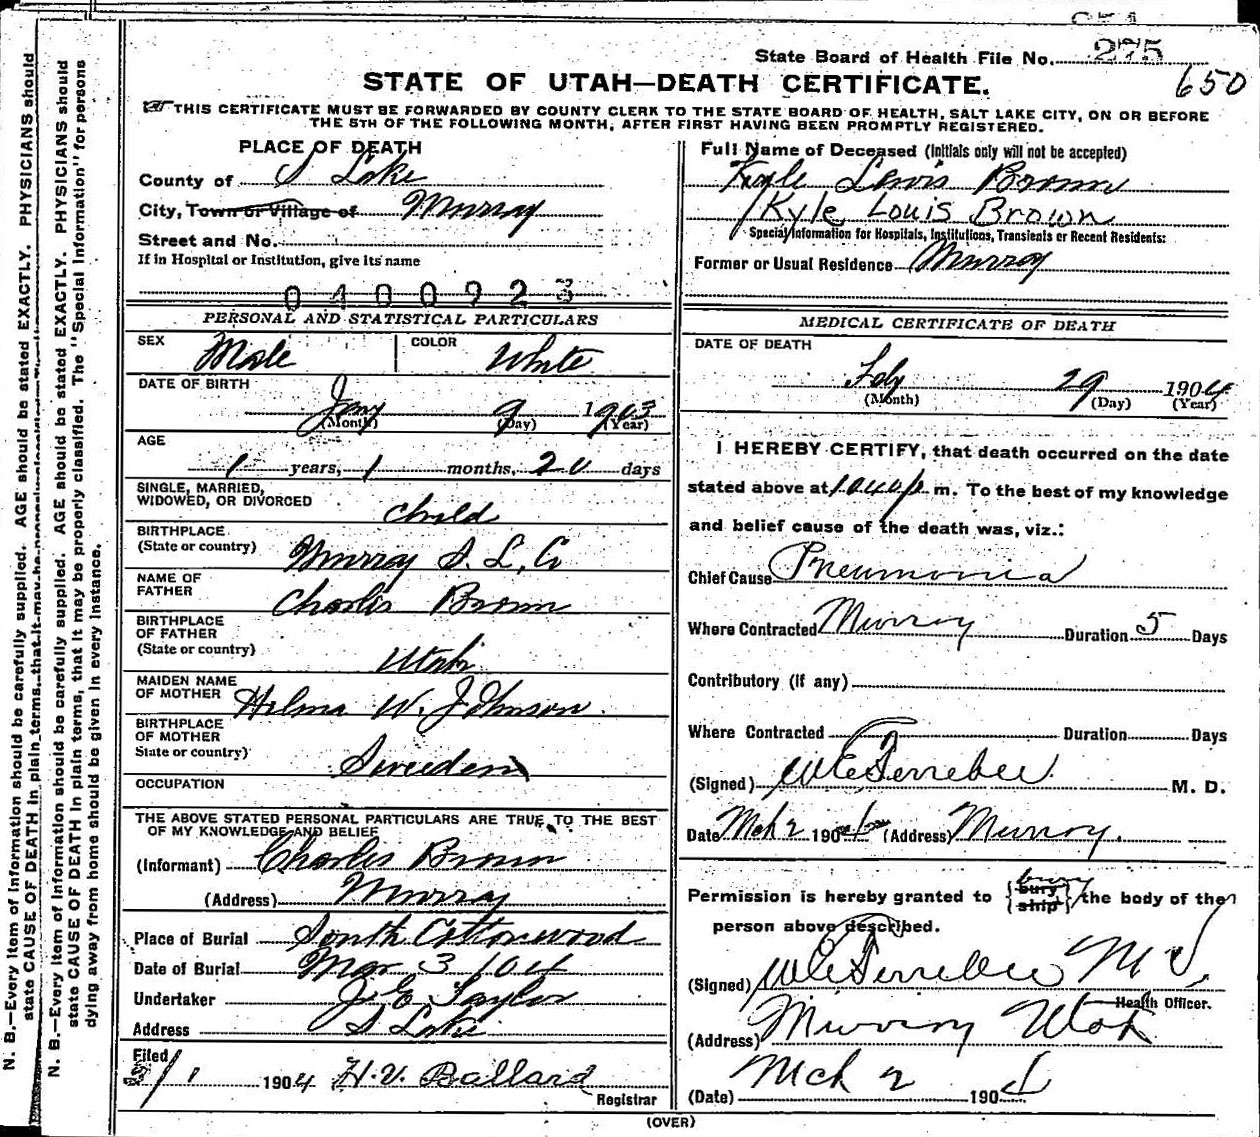 State Board of Health File No. 275
650
STATE OF UTAH—DEATH CERTIFICATE.
THIS CERTIFICATE MUST BE FORWARDED BY COUNTY CLERK TO THE STATE BOARD OF HEALTH, SALT LAKE CITY, ON OR BEFORE
THE 5TH OF THE FOLLOWING MONTH, AFTER FIRST HAVING BEEN PROMPTLY REGISTERED.
PLACE OF DEATH
County of S Lake
City, Town or Village of Murray
Street and No.
If in Hospital or Institution, give its name
0400923
PERSONAL AND STATISTICAL PARTICULARS
SEX Male COLOR White
DATE OF BIRTH
Jany 9 1903
(Month) (Day) (Year)
AGE
1 years, 1 months, 20 days
SINGLE, MARRIED,
WIDOWED, OR DIVORCED child
BIRTHPLACE
(State or country) Murray S. L. Co
NAME OF
FATHER Charles Brown
BIRTHPLACE
OF FATHER
(State or country) Utah
MAIDEN NAME
OF MOTHER Hilma W. Johnson.
BIRTHPLACE
OF MOTHER
State or country) Sweden
OCCUPATION
THE ABOVE STATED PERSONAL PARTICULARS ARE TRUE TO THE BEST
OF MY KNOWLEDGE AND BELIEF
(Informant) Charles Brown
(Address) Murray
Place of Burial South Cottonwood
Date of Burial Mar 3 104
Undertaker J. E. Taylor
Address S Lake
Filed
3/1 1904 H. V. Ballard
Registrar
Full Name of Deceased (Initials only will not be accepted)
Lewis Brown
Kyle Louis Brown
Special Information for Hospitals, Institutions, Transients or Recent Residents:
Former or Usual Residence Murray
MEDICAL CERTIFICATE OF DEATH
DATE OF DEATH
Feby 29 1904
(Month) (Day) (Year)
I HEREBY CERTIFY, that death occurred on the date
stated above at 1040 p m. To the best of my knowledge
and belief cause of the death was, viz.:
Chief Cause Pneumonia
Where Contracted Murray Duration 5 Days
Contributory (if any)
Where Contracted Duration Days
(Signed) M. D.
Date Mch 2 1904 (Address) Murray.
Permission is hereby granted to bury {bury ship} the body of the
person above described.
(Signed) M D.
Health Officer.
(Address) Murray Utah
Mch 2
(Date) 1904
(OVER)
N. B.—Every item of information should be carefully supplied. AGE should be stated EXACTLY. PHYSICIANS should
state CAUSE OF DEATH in plain terms, that it may be
N. B.—Every item of information should be carefully supplied. AGE should be stated EXACTLY. PHYSICIANS should
state CAUSE OF DEATH in plain terms, that it may be properly classified. The "Special Information" for persons
dying away from home should be given in every instance.